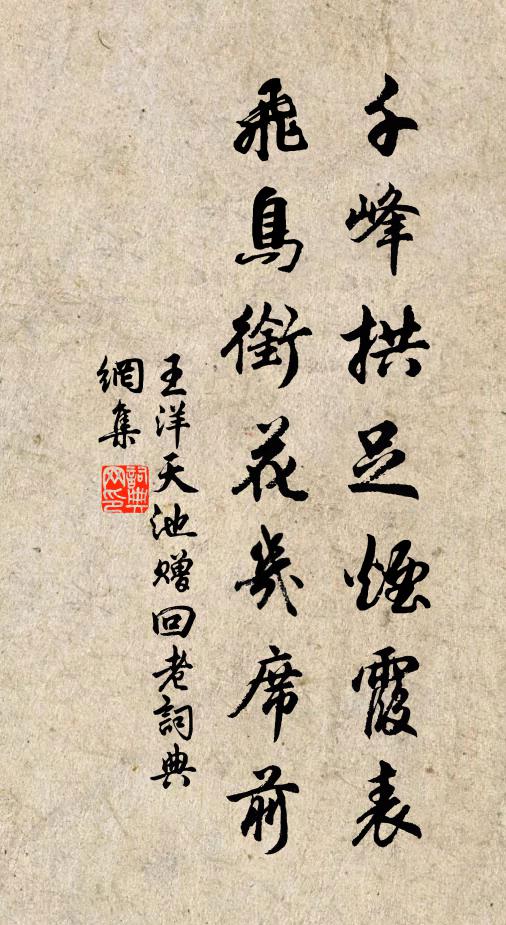 千峰拱足煙霞表
飛鳥銜花几席前
王洋天池贈回老詞典
網集
詞典
网印